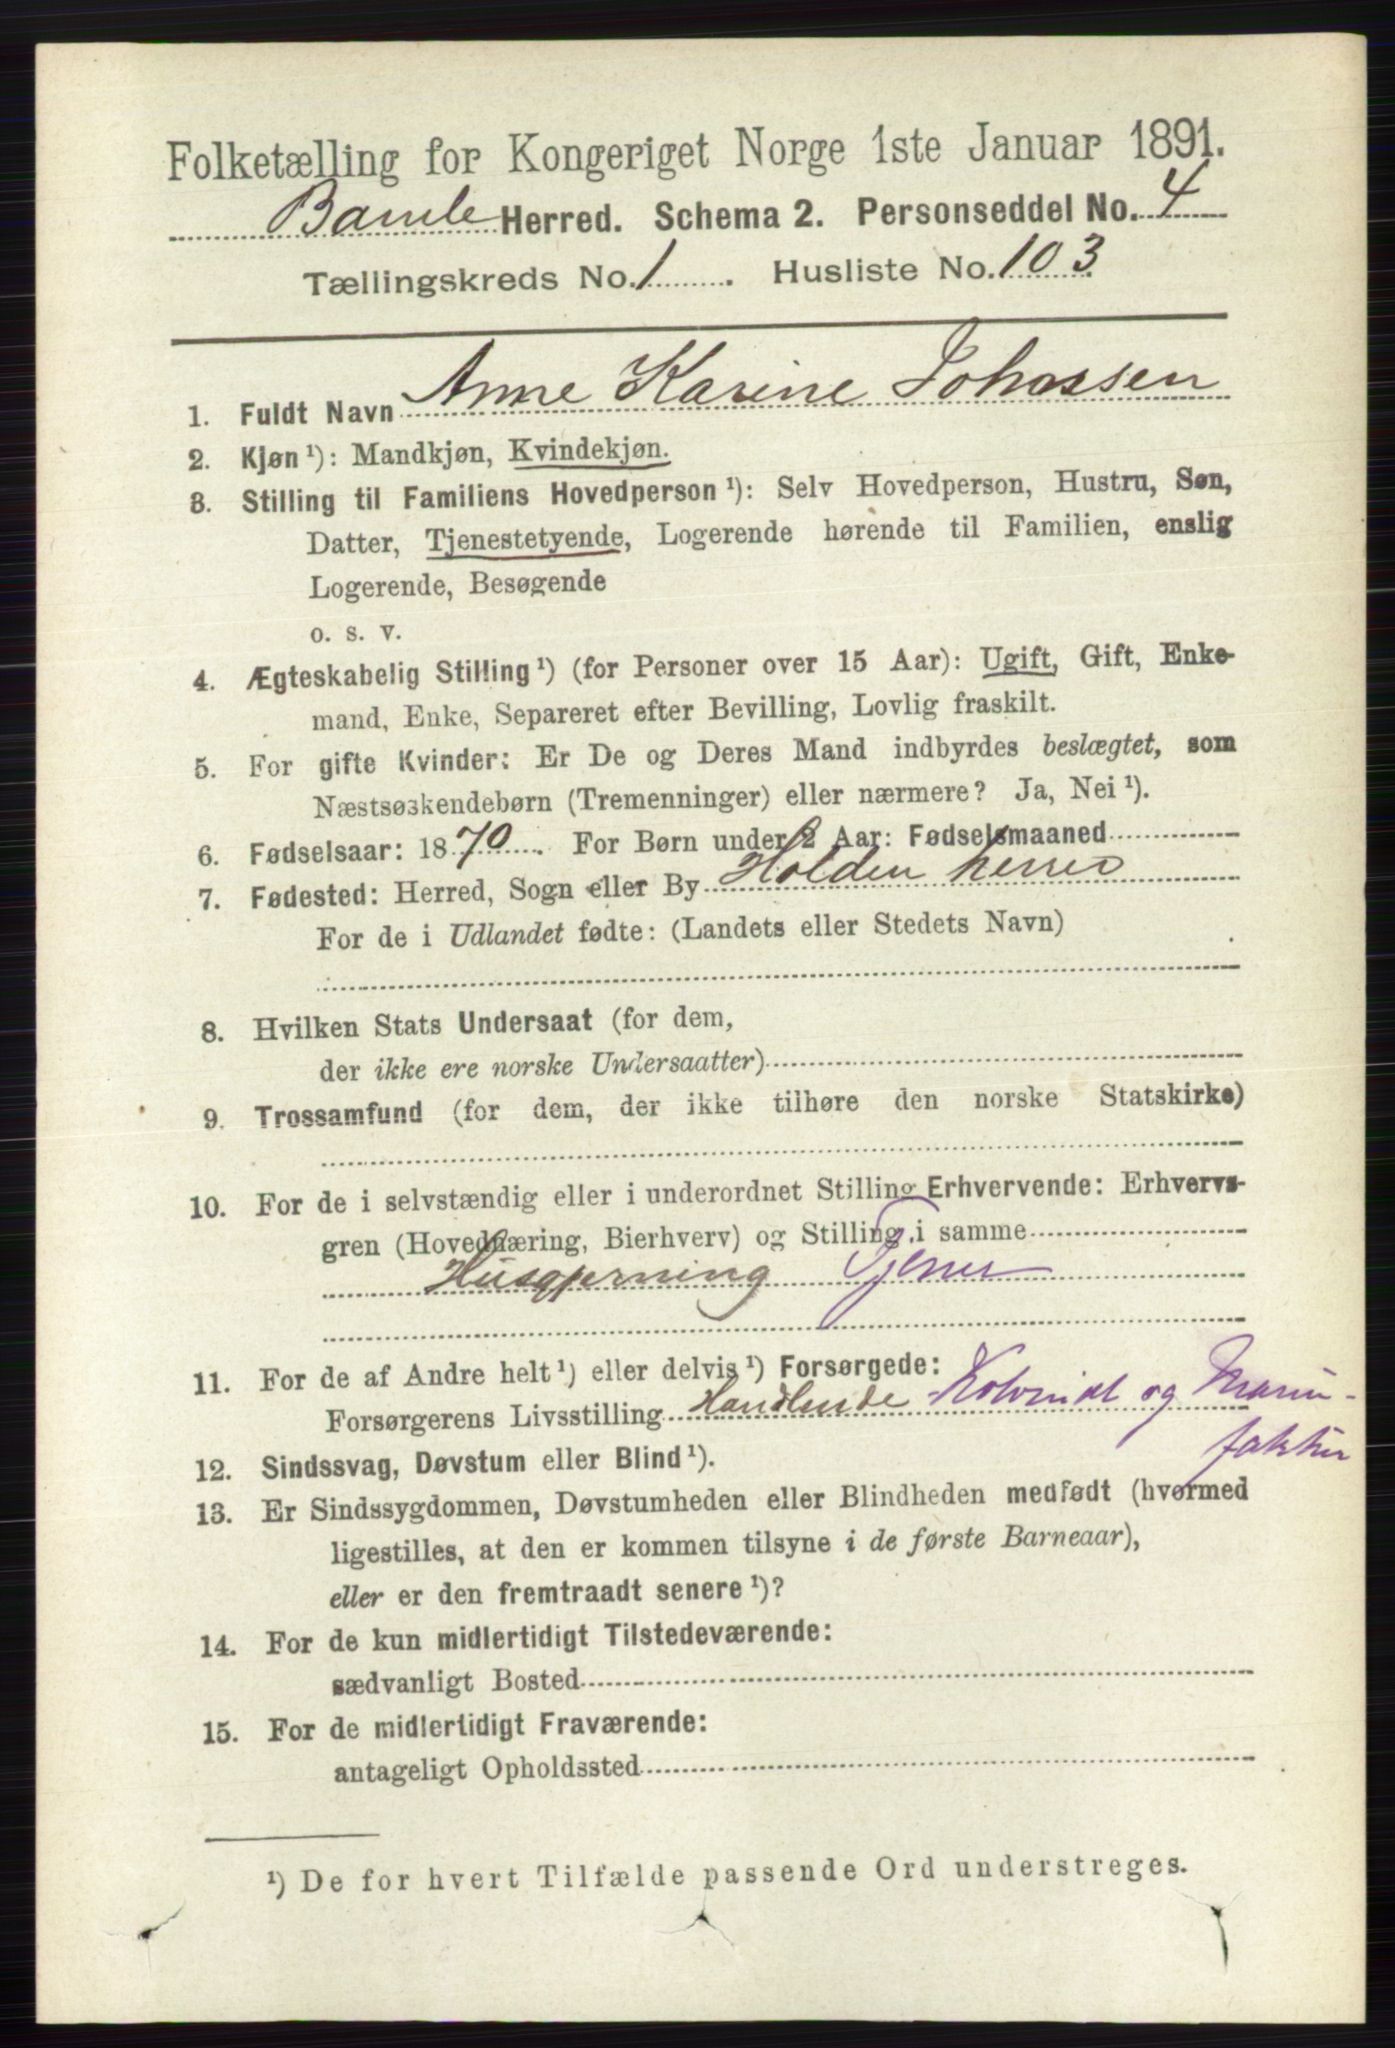 Folketælling for Kongeriget Norge 1ste Januar 1891.
Bamle Herred. Schema 2. Personseddel No. 4
Tællingskreds No. 1. Husliste No. 103
1. Fuldt Navn Anne Karine Johassen
2. Kjøn ¹): Mandkjøn, Kvindekjøn.
3. Stilling til Familiens Hovedperson ¹): Selv Hovedperson, Hustru, Søn,
Datter, Tjenestetyende, Logerende hørende til Familien, enslig
Logerende, Besøgende
o. s. v.
4. Ægteskabelig Stilling ¹) (for Personer over 15 Aar): Ugift, Gift, Enke-
mand, Enke, Separeret efter Bevilling, Lovlig fraskilt.
5. For gifte Kvinder: Er De og Deres Mand indbyrdes beslægtet, som
Næstsøskendebørn (Tremenninger) eller nærmere? Ja, Nei ¹).
6. Fødselsaar: 1870. For Børn under 2 Aar: Fødselsmaaned
7. Fødested: Herred, Sogn eller By Holden herred
For de i Udlandet fødte: (Landets eller Stedets Navn)
8. Hvilken Stats Undersaat (for dem,
der ikke ere norske Undersaatter)
9. Trossamfund (for dem, der ikke tilhøre den norske Statskirke)
10. For de i selvstændig eller i underordnet Stilling Erhvervende: Erhvervs-
gren (Hovednæring, Bierhverv) og Stilling i samme
Husgjerning Tjener
11. For de af Andre helt ¹) eller delvis ¹) Forsørgede:
Forsørgerens Livsstilling Handlende Kolonial og Manu-
faktur
12. Sindssvag, Døvstum eller Blind ¹).
13. Er Sindssygdommen, Døvstumheden eller Blindheden medfødt (hvormed
ligestilles, at den er kommen tilsyne i de første Barneaar),
eller er den fremtraadt senere ¹)?
14. For de kun midlertidigt Tilstedeværende:
sædvanligt Bosted
15. For de midlertidigt Fraværende:
antageligt Opholdssted
¹) De for hvert Tilfælde passende Ord understreges.